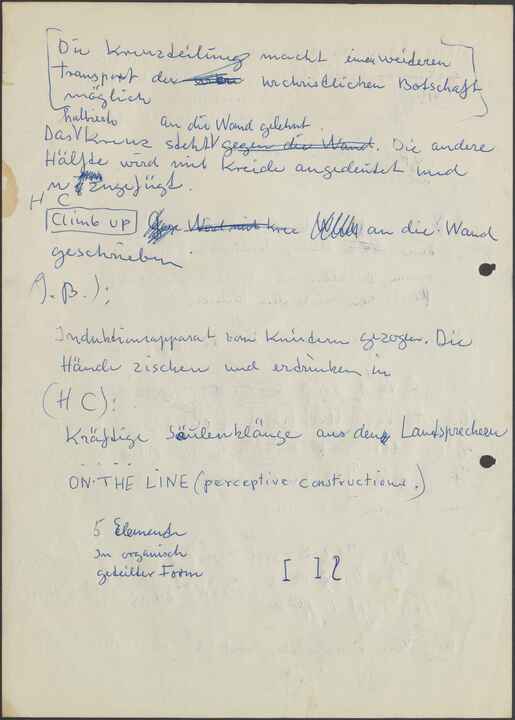 Die Kreuzteilung macht einen weiteren
transport der urchristlichen Botschaft
möglich
halbierte an die Wand gelehnt
Das Kreuz steht gegen die Wand. Die andere
Hälfte wird mit Kreide angedeutet und
zugefügt.
H C
Climb up an die Wand
geschrieben
J.B.):
Induktionsapparat von Kindern gezogen. Die
Hände zischen und erdrücken in
(H C):
Kräftige Säulenklänge aus den Lautsprechern
.....
ON THE LINE (perceptive constructions.)
5 Elemente
in organisch
geteilter Form
[ ] 2